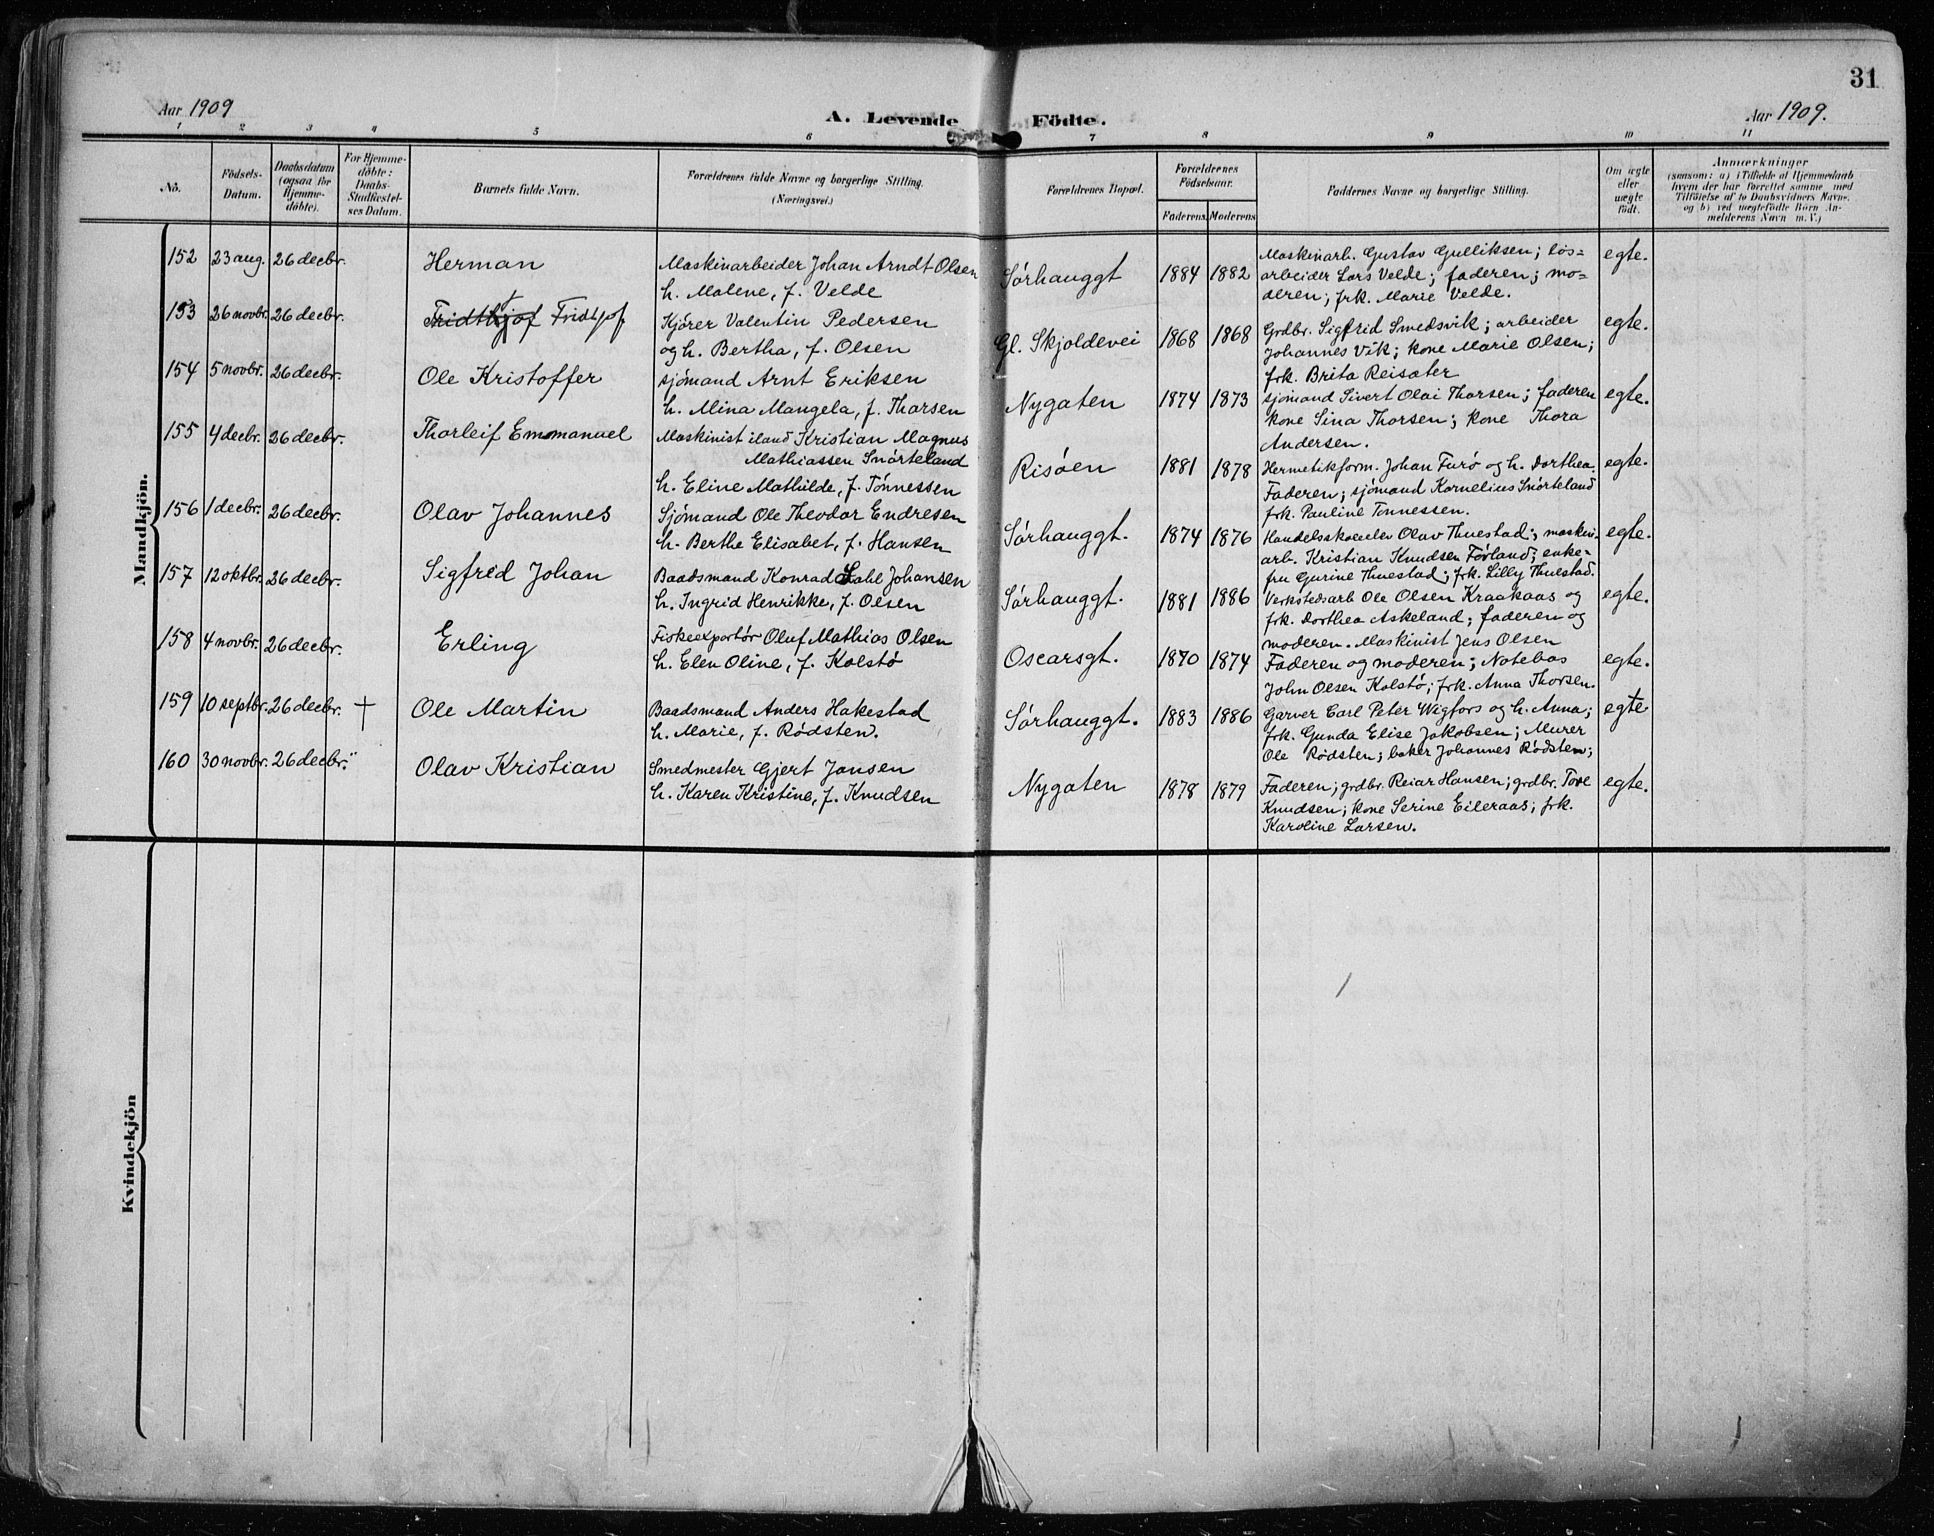 31
Aar 1909
A. Levende Födte.
Aar 1909.
1 2 3 4 5 6 7 8 9 10 11
No.
Födsels-
Datum.
Daabsdatum
(ogsaa for
Hjemme-
döbte).
For Hjemme-
döbte:
Daabs-
Stadfæstel-
ses Datum.
Barnets fulde Navn.
Forældrenes fulde Navne og borgerlige Stilling.
(Næringsvei.)
Forældrenes Bopæl.
Forældrenes
Födselsaar.
Faderens. Moderens.
Faddernes Navne og borgerlige Stilling.
Om ægte
eller
uægte
födt.
Anmærkninger
(saasom: a) i Tilfælde af Hjemmedaab
hvem der har forrettet samme med
Tilföielse af to Daabsvidners Navne.
og b) ved uægtefödte Börn An-
melderens Navn m. V.)
Mandkjön.
152 23 aug. 26 decbr. Herman
Maskinarbeider Johan Arndt Olsen
h. Malene, f. Velde
Sørhauggt 1884 1882
Maskinarb. Gustav Gulliksen; løs-
arbeider Lars Velde; faderen; mo-
deren; frk. Marie Velde.
egte.
153 26 novbr. 26 decbr. Fridthjof Fridtjof
Kjører Valentin Pedersen
og h. Bertha, f. Olsen
Gl. Skjoldevei 1868 1868
Grdbr. Sigfrid Smedsvik; arbeider
Johannes Vik; kone Marie Olsen;
frk. Brita Reisæter
egte.
154 5 novbr. 26 decbr. Ole Kristoffer
sjömand Arnt Eriksen
h. Mina Mangela, f. Thorsen
Nygaten 1874 1873
sjömand Sivert Olai Thorsen; faderen
kone Sina Thorsen; kone Thora
Andersen.
egte.
155 4 decbr. 26 decbr. Thorleif Emmanuel
Maskinist iland Kristian Magnus
Mathiassen Snørteland
h. Eline Mathilde, f. Tönnessen
Risöen 1881 1878
Hermetikform. Johan Furø og h. Dorthea.
Faderen; sjömand Kornelius Snørteland
frk. Pauline Tønnessen.
egte.
156 1 decbr. 26 decbr. Olav Johannes
Sjömand Ole Theodor Endresen
h. Berthe Elisabet, f. Hansen
Sørhauggt. 1874 1876
Handelsskoeelev Olav Thuestad; maskin.
arb. Kristian Knudsen Førland; enke-
fru Gurine Thuestad; frk. Lilly Thuestad.
egte.
157 12 oktbr. 26 decbr. Sigfred Johan
Baadsmand Konrad Lahl Johansen
h. Ingrid Henrikke, f. Olsen
Sørhauggt. 1881 1886
Verkstedsarb Ole Olsen Kraakaas og
frk. Dorthea Askeland; faderen og
moderen. Maskinist Jens Olsen
egte.
158 4 novbr. 26 decbr. Erling
Fiskeexportør Oluf Mathias Olsen
h. Elen Oline, f. Kolstø
Oscarsgt. 1870 1874
Faderen og moderen; Notebas
John Olsen Kolstø; frk. Anna Thorsen.
egte.
159 10 septbr. 26 decbr. † Ole Martin
Baadsmand Anders Hakestad
h. Marie, f. Rødsten.
Sørhauggt. 1883 1886
Garver Carl Peter Wigfors og h. Anna;
frk. Gunda Elise Jakobsen; Murer
Ole Rødsten; baker Johannes Rødsten;
egte
160 30 novbr. 26 decbr. Olav Kristian
Smedmester Gjert Jansen
h. Karen Kristine, f. Knudsen
Nygaten 1878 1879
Faderen; grdbr. Reiar Hansen; grdbr. Tore
Knudsen; kone Serine Eileraas; frk.
Karoline Larsen.
egte.
Kvindekjön